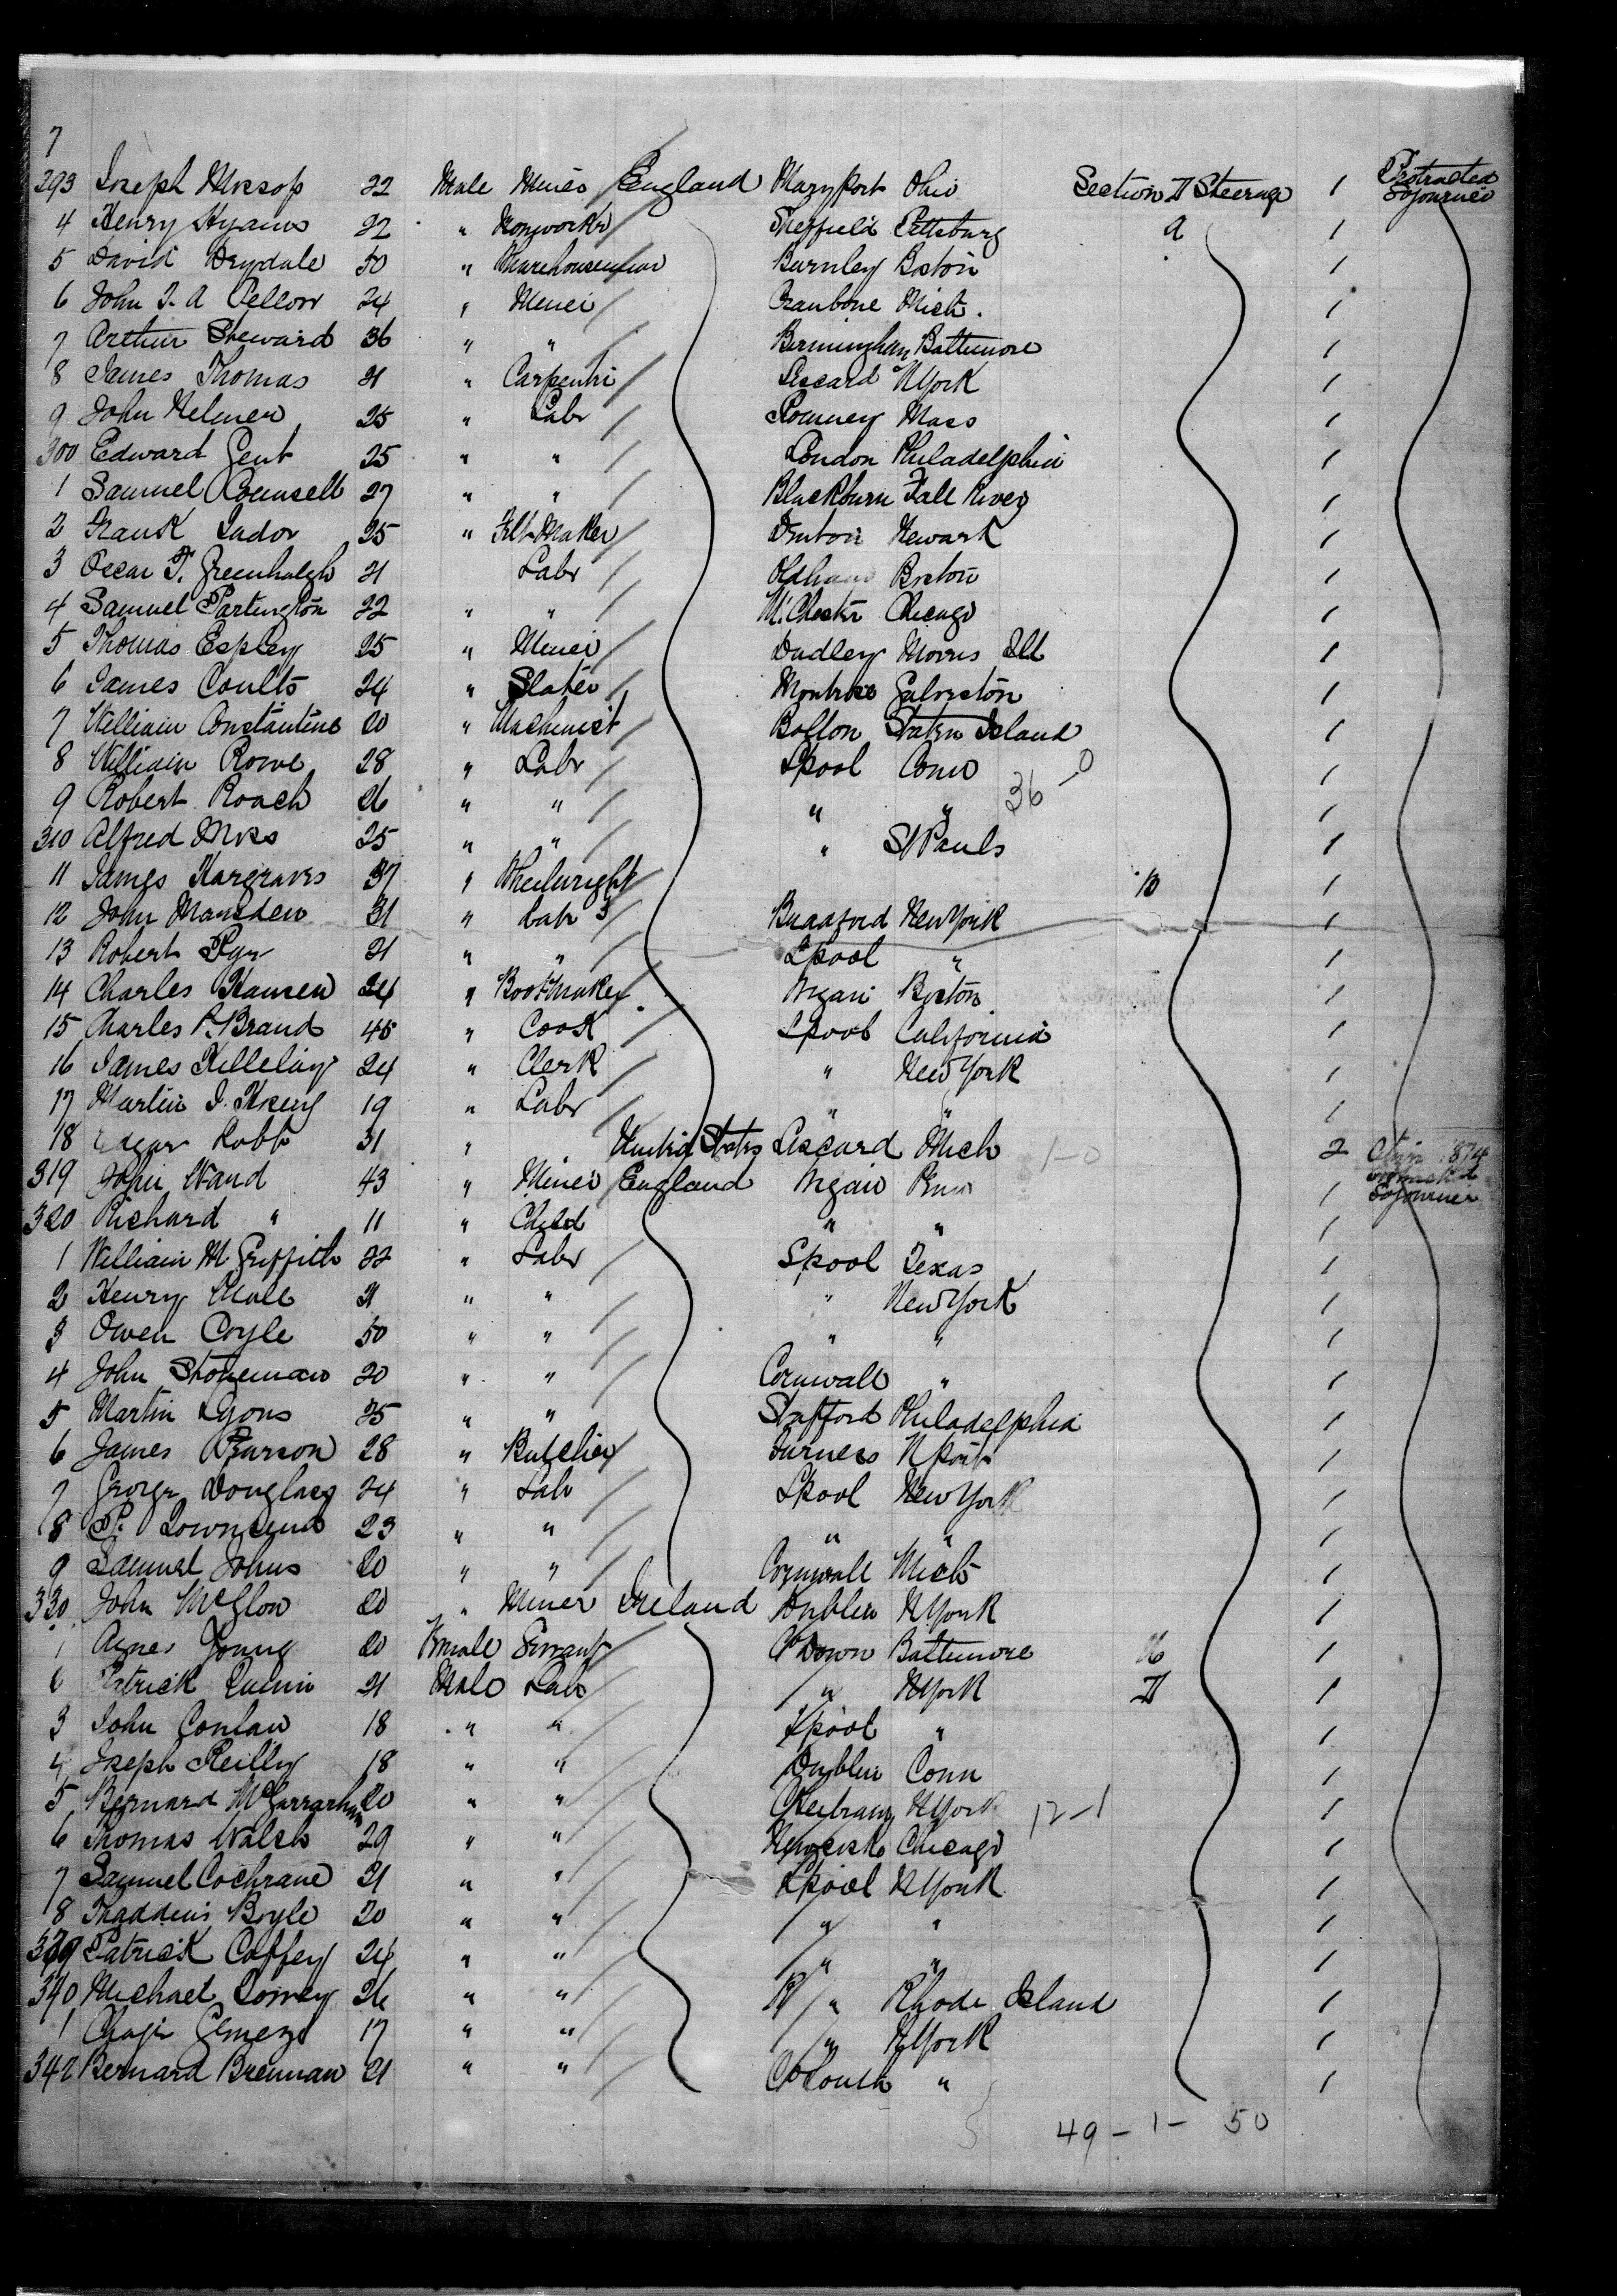 7
293 Joseph Mossop 22 Male Miner England Maryport Ohio Section D Steerage 1 Protracted Sojourner
4 Henry Hyams 22 " Ironworker Sheffield Pittsburg A 1
5 David Drysdale 50 " Warehouseman Burnley Boston 1
6 John T. A Pellow 24 " Miner Mich. 1
7 Arthur Steward 36 " " Birmingham Baltimore 1
8 James Thomas 21 " Carpenter Liscard N York 1
9 John Helmer 25 " Labr Romney Mass 1
300 Edward Gent 25 " " London Philadelphia 1
1 Samuel Counsell 27 " " Blackburn Fall River 1
2 Frank Lador 25 " Felt Maker Denton Newark 1
3 Oscar T. Greenhalgh 21 Labr Oldham Boston 1
4 Samuel Partington 22 " " M.Chester Chicago 1
5 Thomas Espley 25 " Miner Dudley Morris Ill 1
6 James Coutts 24 " Slater Montrose Galveston 1
7 William Constantine 20 " Machinist Bolton Staten Island 1
8 William Rowe 28 " Labr Lpool Conn 1
9 Robert Roach 26 " " " " 36-0 1
310 Alfred Moss 25 " " " St Pauls 1
11 James Hargraves 37 " Wheelwright 1
12 John Marsden 31 " Labr Bradford New York 1
13 Robert 21 " " Lpool " 1
14 Charles Hansen 24 " Bootmaker Wigan Boston 1
15 Charles P. Brand 45 " Cook Lpool California 1
16 James Killelay 24 " Clerk " New York 1
17 Martin J. 19 " Labr " " 1
18 Edgar Robb 31 " United States Liscard Mich 1-0 2 Citizn 1874
319 John Wand 43 " Miner England Wigan Penn 1 Protracted Sojourner
320 Richard " 11 " Child " " 1
1 William M Griffith 22 " Labr Lpool Texas 1
2 Henry 21 " " " New York 1
3 Owen Coyle 50 " " " " 1
4 John Stoneman 20 " " Cornwall " 1
5 Martin Lyons 25 " " Stafford Philadelphia 1
6 James Pearson 28 " Butcher Furness N port 1
7 George Douglass 24 " Labr Lpool New York 1
8 P. Townsend 23 " " " " 1
9 Samuel Johns 20 " " Cornwall Mich 1
330 John McGlon 20 " Miner Ireland Dublin N York 1
1 Agnes Young 20 Female Servant Co Down Baltimore 1
6 Patrick Quinn 21 Male Labr " N York D 1
3 John Conlan 18 " " Lpool " 1
4 Joseph Reilly 18 " " Dublin Conn 1
5 Bernard McGarrahan 20 " " N York 12-1 1
6 Thomas Walsh 29 " " Chicago 1
7 Samuel Cochrane 21 " " Lpool N York 1
8 Thaddeus Boyle 20 " " " " 1
339 Patrick Caffey 24 " " " " 1
340 Michael 26 " " " Rhode Island 1
1 17 " " " N York 1
342 Bernard Brennan 21 " " Co Louth " 1
49-1-50